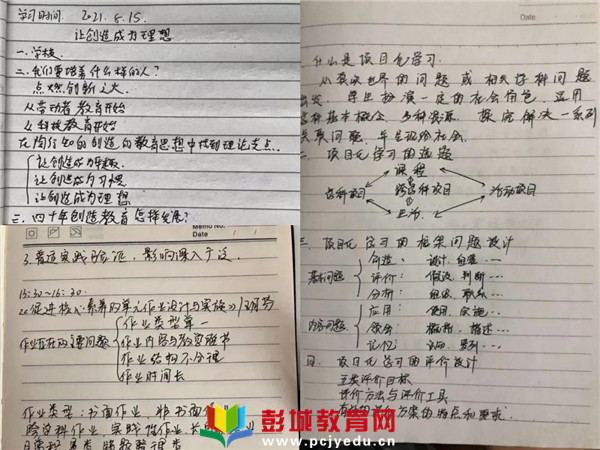 学习时间 2021.8.15.
让创造成为理想
一.学校.
二.我们要培养什么样的人?
点燃创新之火
从劳动者教育开始
从科技教育开始
在陶行知的创造的教育思想中找到理论支点.
让创造成为乐趣.
让创造成为习惯
让创造成为理想
三.四十年创造教育怎样发展?
Memo No.
Date / /
3.普适实践验证,影响深入广泛.
15:30~16:30.
《促进核心素养的单元作业设计与实施》/
作业存在的主要问题
作业类型单一
作业内容与教学脱节
作业结构不合理
作业时间长
作业类型:书面作业,非书面
跨学科作业,实践性作业,长
Date
什么是项目化学习.
从真实世界的问题或相关学科问题
出发,学生扮演一定的社会角色,运用
学科基本概念,多种资源,探究解决一系列
关联问题,并呈现给社会.
二.项目化学习的选题
课程
学科项目 跨学科项目 活动项目
生活.
三.项目化学习的框架问题设计
基本问题
创造: 设计,组建…
评价: 假设,判断…
分析: 组织,联系…
内容问题
应用: 使用,实施…
领会: 概括,描述…
记忆: 列举…
四.项目化学习的评价设计
五类评价目标
评价方法与评价工具
方案的特点和要求.
彭城教育网
www.pcjyedu.cn